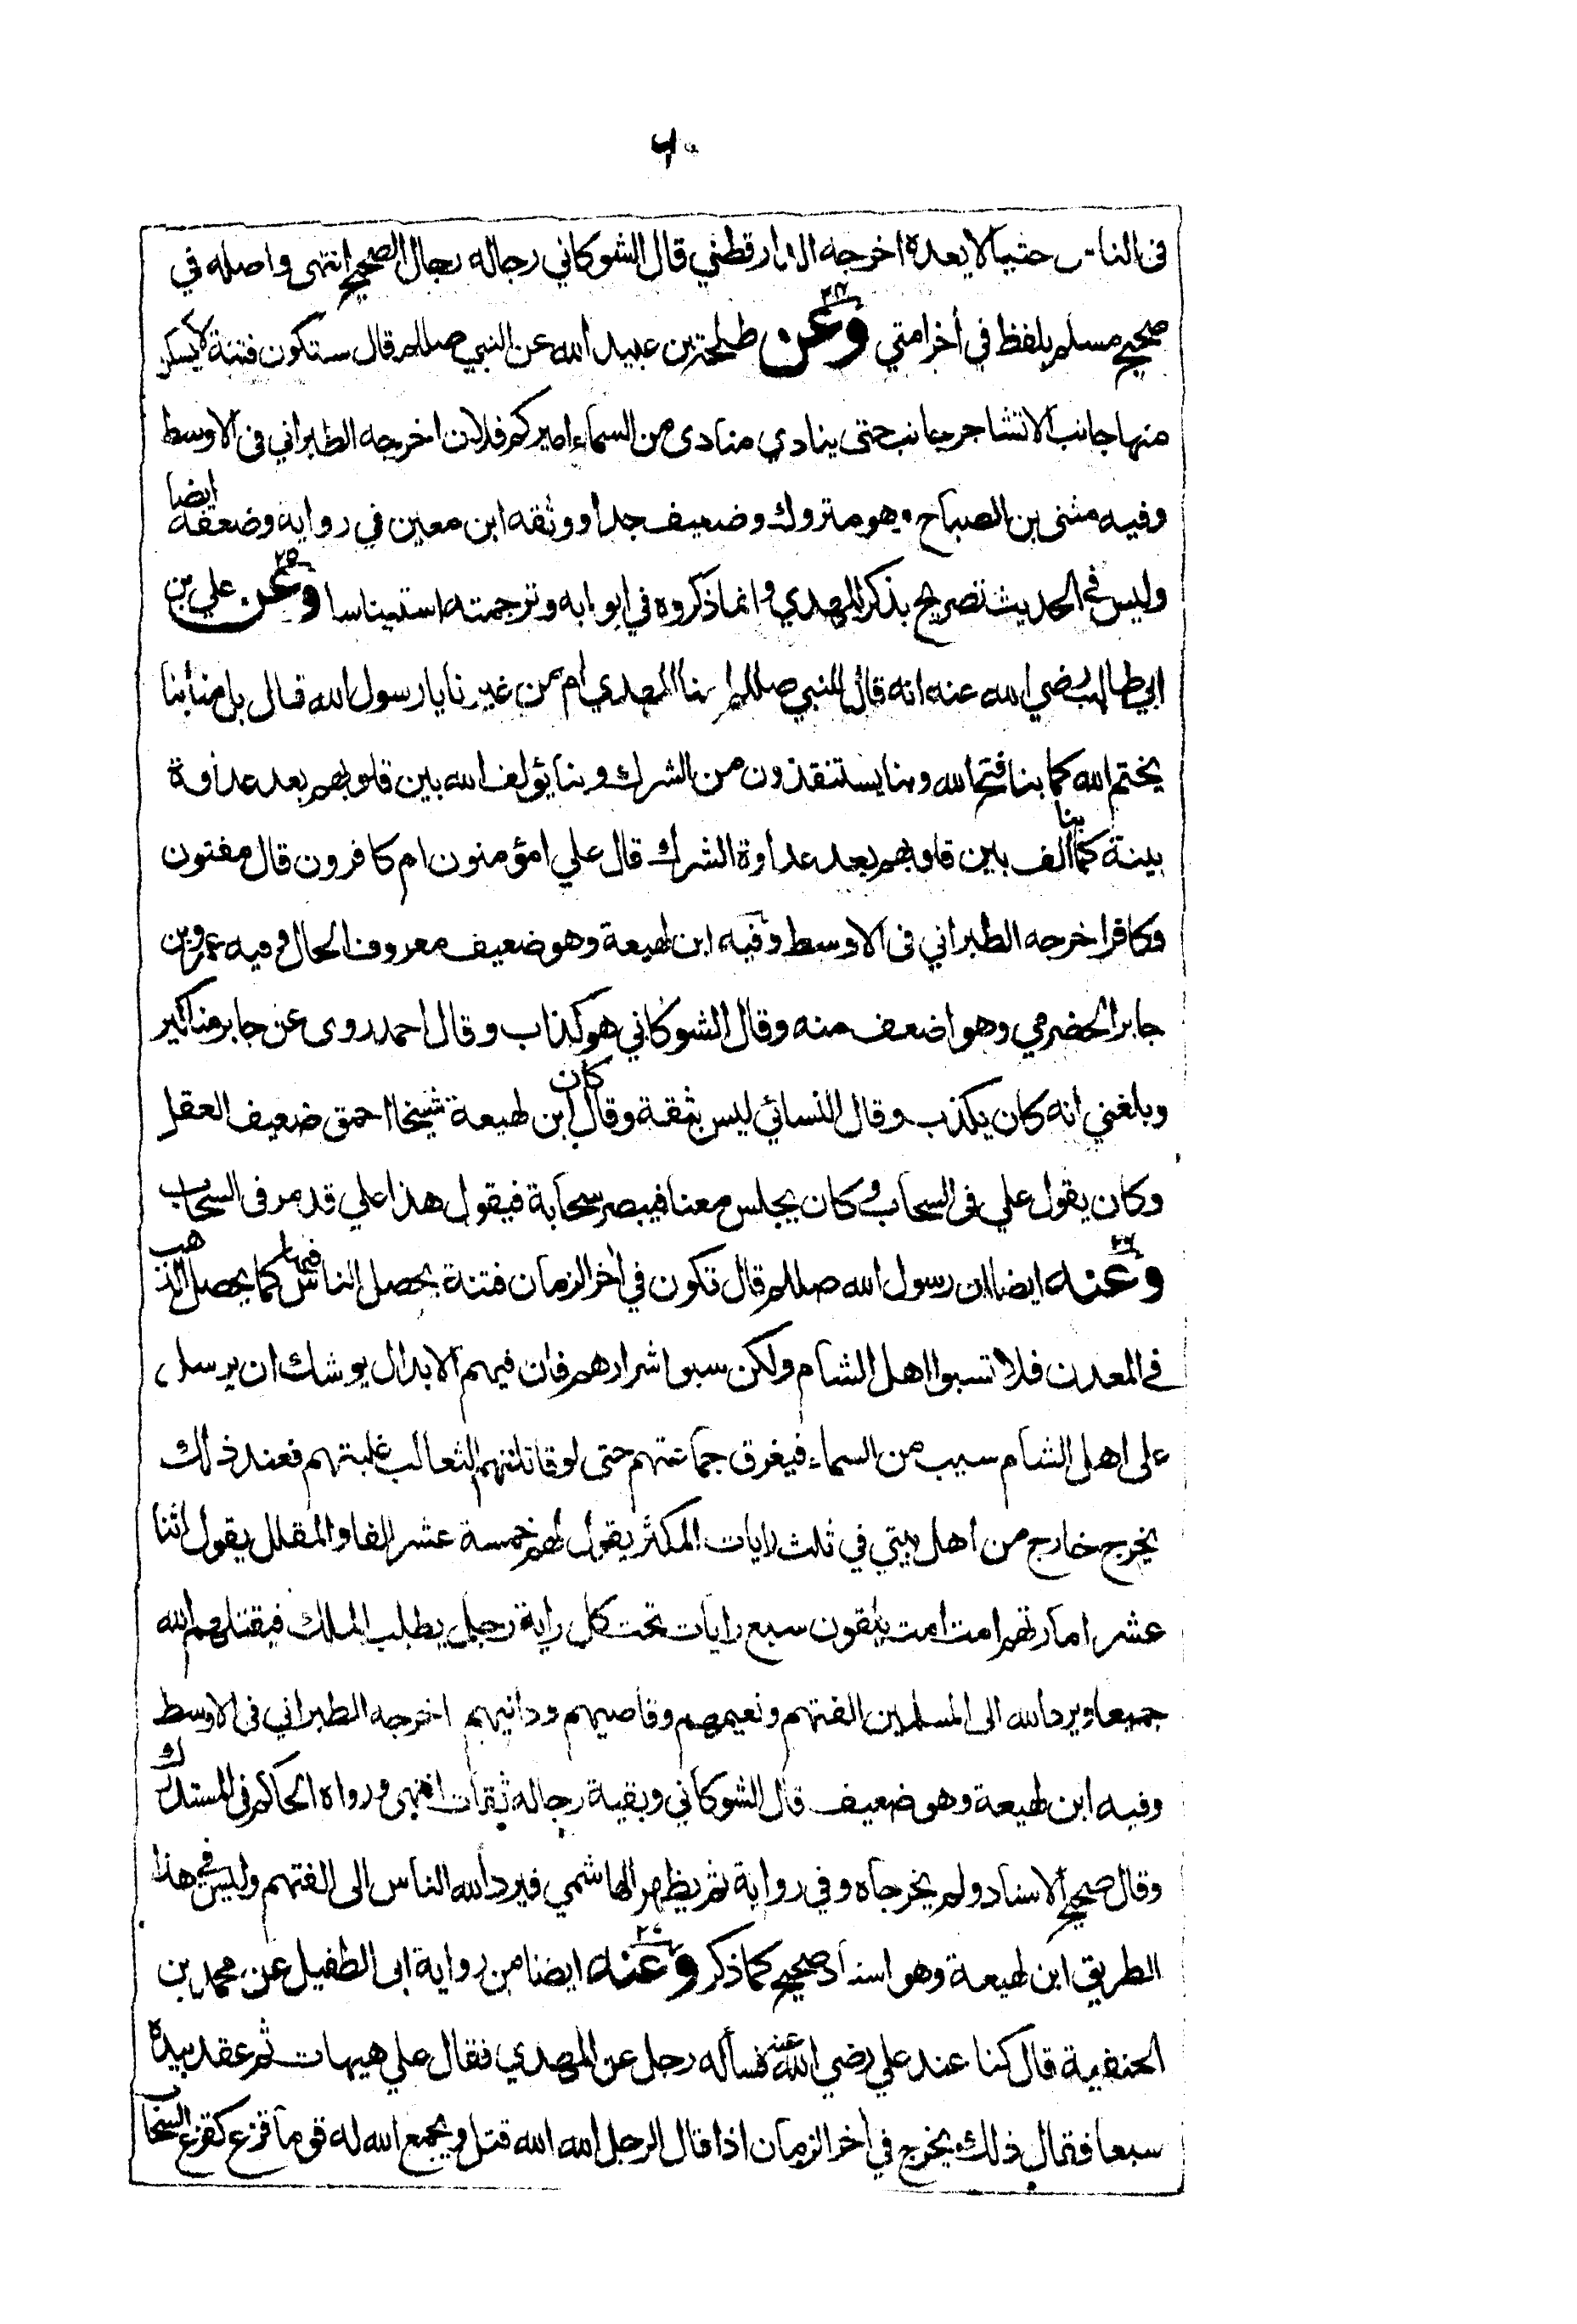 ٦٠
فى الناس حثيا لا يعده اخرجه الدارقطني قال الشوكاني رجاله رجال الصحيح انتهى واصله في
صحيح مسلم بلفظ في أخر امتي وعن طلحة بن عبيد الله عن النبي صللم قال ستكون فتنة لا يسكن
منها جانب الا تشاجر جانب حتى ينادي منادى من السماء اميركم فلان اخرجه الطبراني فى الاوسط
وفيه مثنى بن الصباح وهو متروك وضعيف جدا ووثقه ابن معين في رواية وضعفه ايضا
وليس في الحديث تصريح بذكر المهدي وانما ذكروه في ابوابه وترجمته استيناسا ٢٥ وعن علي بن
ابي طالب رضي الله عنه انه قال للنبي صللم امنا المهدي ام من غيرنا يا رسول الله قال بل منا بنا
يختم الله كما بنا فتح الله وبنا يستنقذون من الشرك وبنا يؤلف الله بين قلوبهم بعد عداوة
بينة كما بنا الف بين قلوبهم بعد عداوة الشرك قال علي امؤمنون ام كافرون قال مفتون
وكافر اخرجه الطبراني فى الاوسط وفيه ابن لهيعة وهو ضعيف معروف الحال وفيه عمرو بن
جابر الحضرمي وهو اضعف منه وقال الشوكاني هو كذاب وقال احمد روى عن جابر مناكير
وبلغني انه كان يكذب وقال النسائي ليس بثقة وقال ابن لهيعة كان شيخا احمق ضعيف العقل
وكان يقول علي فى السحاب وكان يجلس معنا فيبصر سحابة فيقول هذا علي قد مر فى السحاب
وعنه ايضا ان رسول الله صللم قال تكون في أخر الزمان فتنة يحصل الناس فيها كما يحصل الذهب
في المعدن فلا تسبوا اهل الشام ولكن سبوا اشرارهم فان فيهم الابدال يوشك ان يرسل
على اهل الشام سبب من السماء فيغرق جماعتهم حتى لو قاتلتهم الثعالب غلبتهم فعند ذلك
يخرج خارج من اهل بيتي في ثلث رايات المكثر يقول لهم خمسة عشر الفا والمقلل يقول اثنا
عشر امارتهم امت امت يلقون سبع رايات تحت كل راية رجل يطلب الملك فيقتلهم الله
جميعا ويرد الله الى المسلمين الفتهم ونعيمهم وقاصيهم ودانيهم اخرجه الطبراني فى الاوسط
وفيه ابن لهيعة وهو ضعيف قال الشوكاني وبقية رجاله ثقات انتهى ورواه الحاكم فى المستدرك
وقال صحيح الاسناد ولم يخرجاه وفي رواية ثم يظهر الهاشمي فيرد الله الناس الى الفتهم وليس في هذا
الطريق ابن لهيعة وهو اسناد صحيح كما ذكر وعنه ايضا من رواية ابى الطفيل عن محمد بن
الحنفية قال كنا عند علي رضي الله عنه فسأله رجل عن المهدي فقال علي هيهات ثم عقد بيده
سبعا فقال ذلك يخرج في أخر الزمان اذا قال الرجل الله الله قتل ويجمع الله له قوما قزع كقزع السحاب